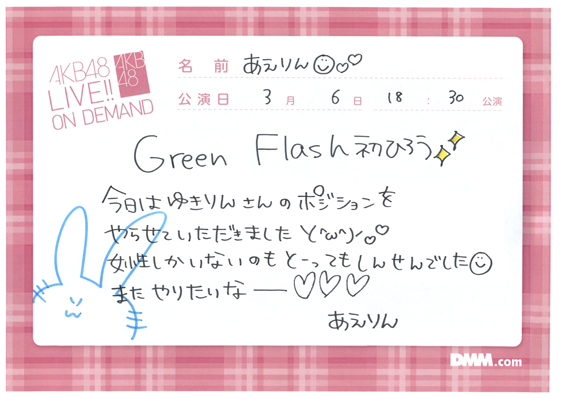 AKB48
LIVE!!
ON DEMAND
AKB
48
名前 あえりん
公演日 3月 6日 18:30公演
Green Flash初ひろう
今日はゆきりんさんのポジションを
やらせていただきました\(^ω^)/
女性しかいないのもとーってもしんせんでした
またやりたいなー
あえりん
DMM.com